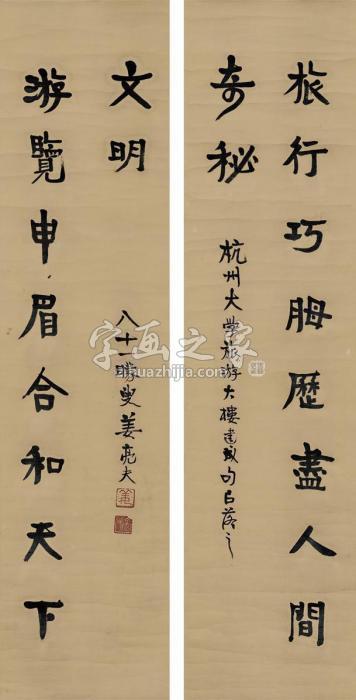 旅行巧胟歷盡人間
奇秘
杭州大学旅游大樓建成句㠯落之
游覽申眉合和天下
文明
八十一叟姜亮夫
字画之家
zihuazhijia.com